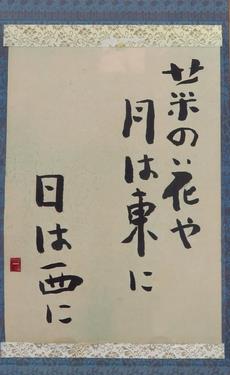 菜の花や
月は東に
日は西に